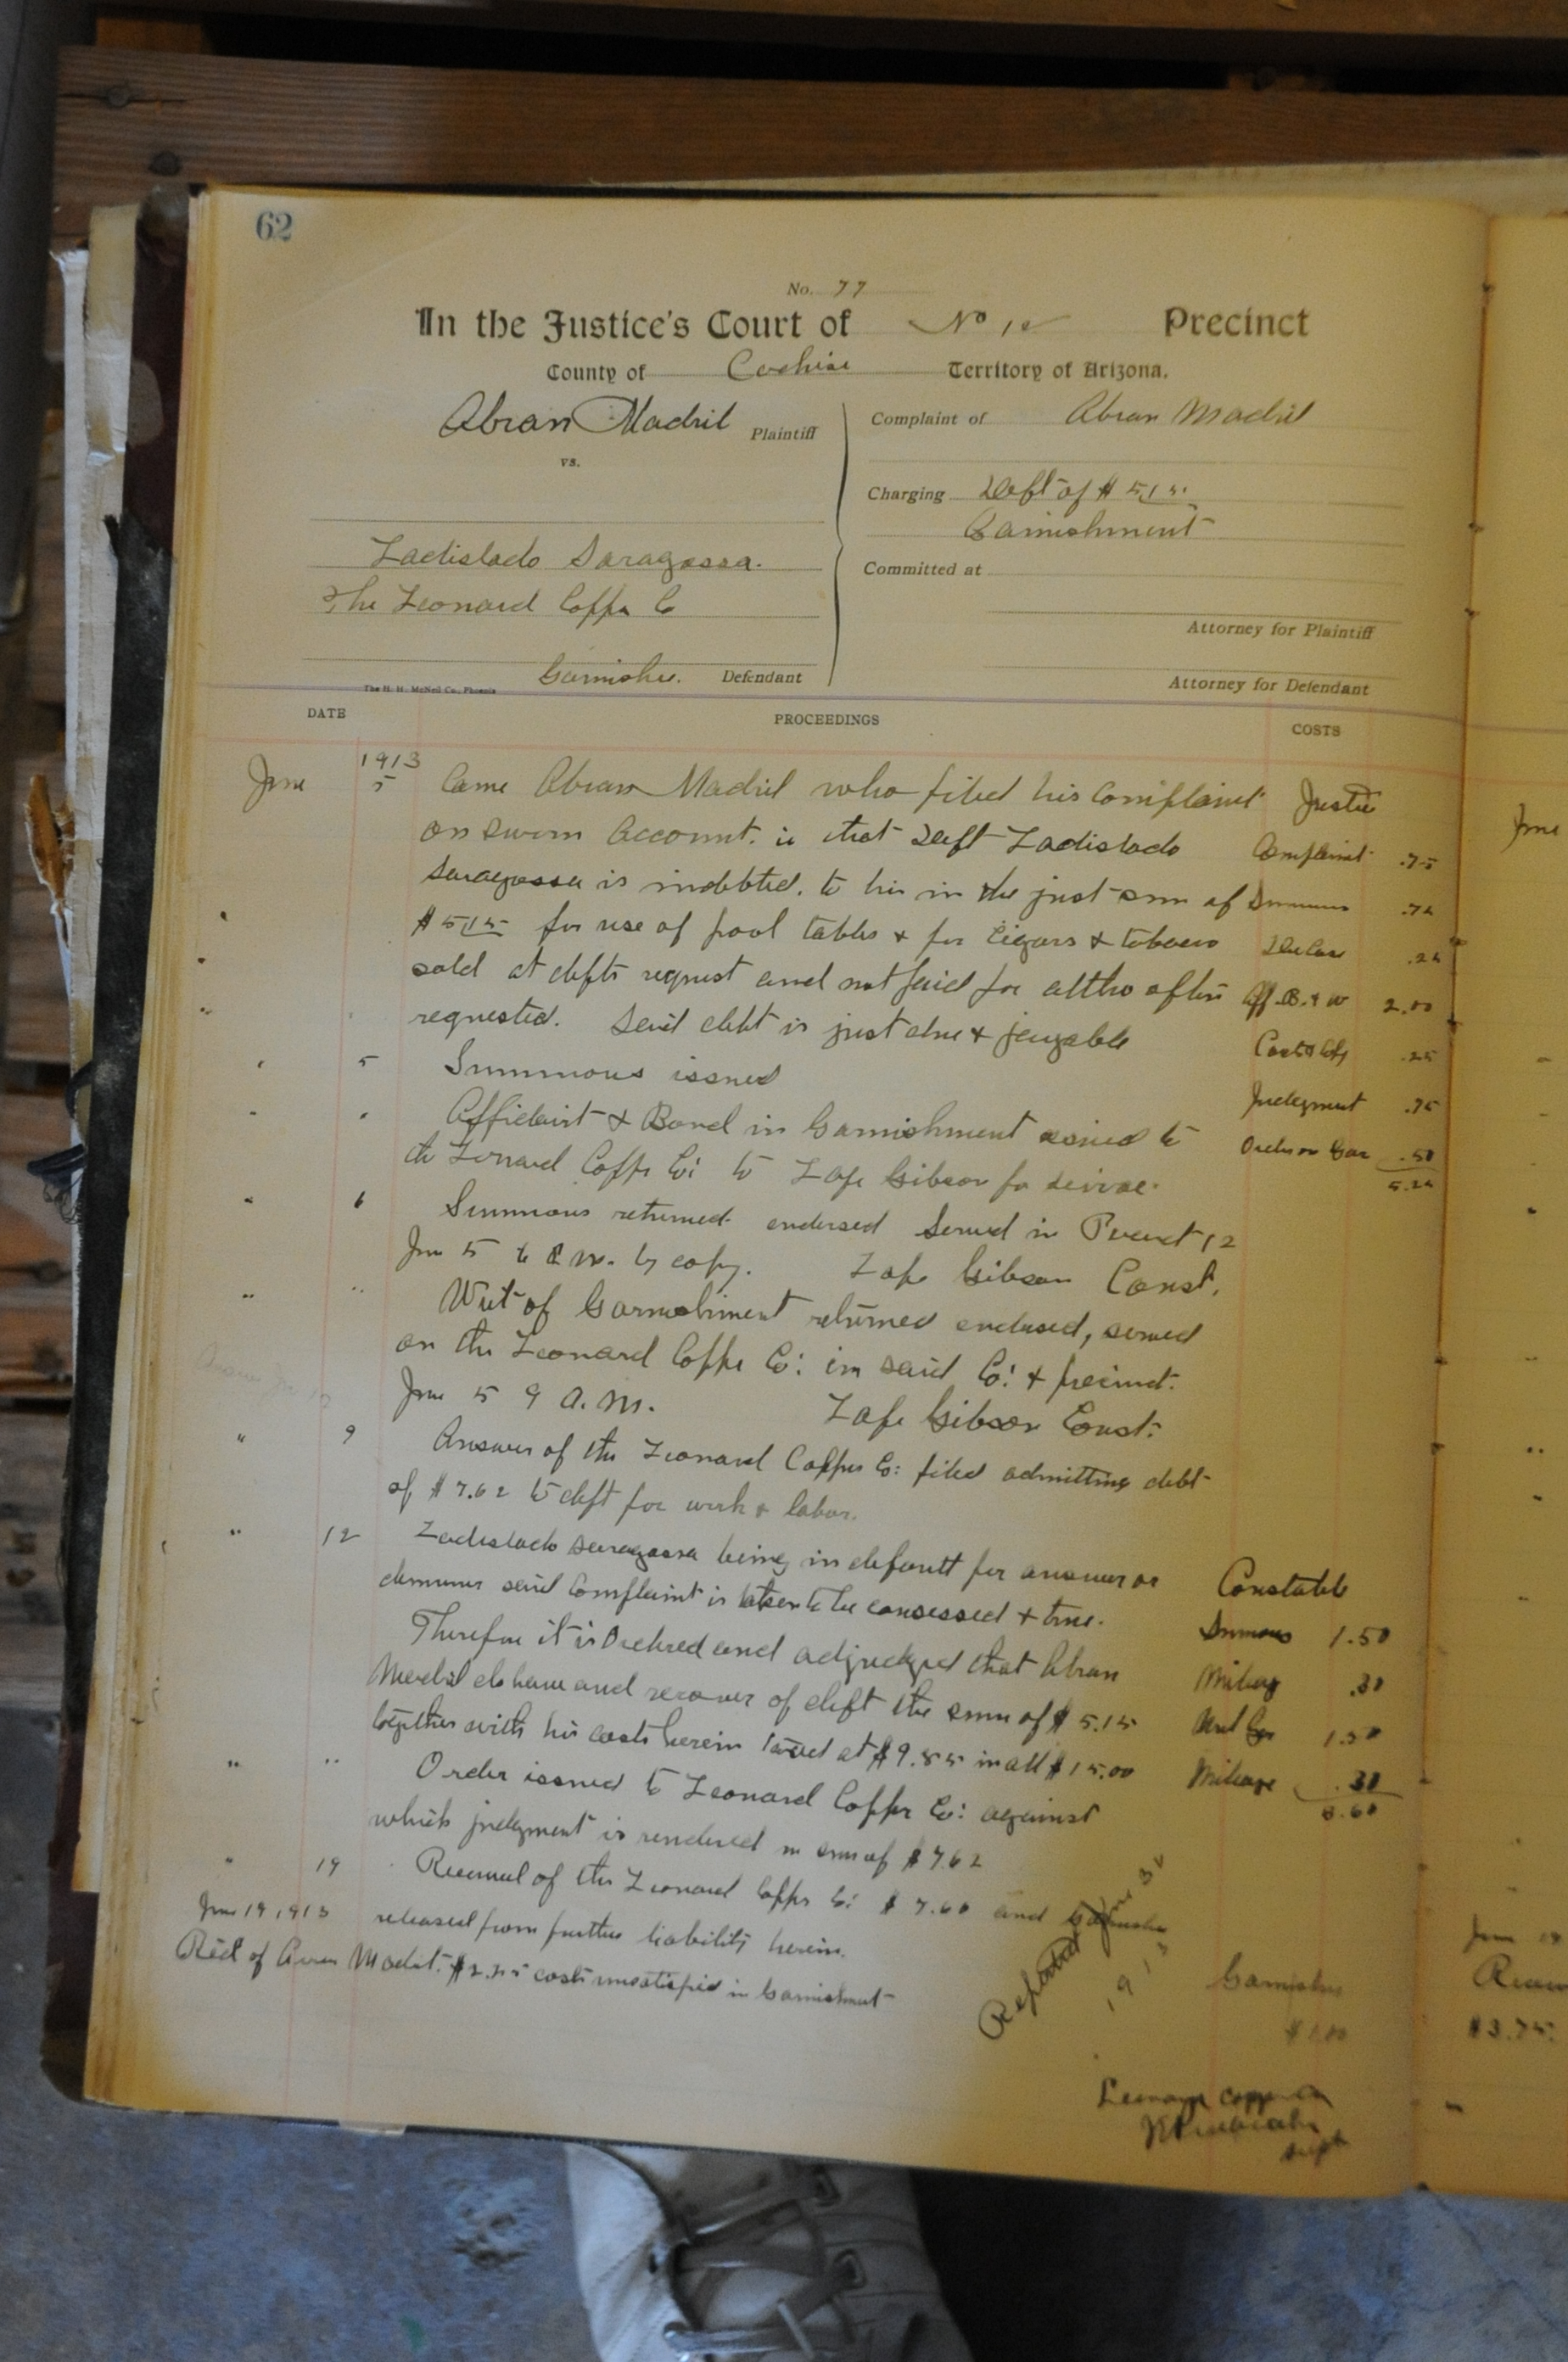 62
No. 77
In the Justice's Court of No 12 Precinct
County of Cochise Territory of Arizona.
Abran Madril Plaintiff
vs.
Ladislado Saragossa.
The Leonard Copper Co
Garnishee. Defendant
The H. H. McNeil Co., Phoenix
Complaint of Abran Madril
Charging Debt of $ 5.15
Garnishment
Committed at
Attorney for Plaintiff
Attorney for Defendant
DATE PROCEEDINGS COSTS
June 1913
5 Came Abran Madril who filed his complaint Justice
on sworn account. is that Deft Ladislado Complaint .75
Saragossa is indebted. to him in the just sum of Summons
$ 5.15 for use of pool tables & for cigars & tobacco
sold at defts request and not paid for altho often Aff. B. & W 2.00
requested. Said debt is just due & payable .25
" 5 Summons issued Judgment .75
" " Affidavit & Bond in Garnishment issued to Order on Gar .50
the Leonard Copper Co: to Lafe Gibson for service.
" 6 Summons returned endorsed Served in Precinct 12
June 5 by copy. Lafe Gibson Const.
" " Writ of Garnishment returned endorsed, served
on the Leonard Copper Co: in said Co: & precinct.
June 5 9 A.M. Lafe Gibson Const.
" 9 Answer of the Leonard Copper Co: filed admitting debt
of $ 7.62 to deft for work & labor.
" 12 Ladislado Saragossa being in default for answer or Constable
demurrer said Complaint is taken to be confessed & true. Summons 1.50
Therefore it is Ordered and adjudged that Abran Mileage .30
Madril do have and recover of deft the sum of $ 5.15 Writ Gar 1.50
together with his costs herein taxed at $ 9.85 in all $ 15.00 Mileage .30
" " Order issued to Leonard Copper Co: against 3.60
which judgment is rendered in sum of $ 7.62
" 19 Received of the Leonard Copper Co: $ 7.60 and Garnishee
released from further liability herein.
June 19, 1913
Recd of Abran Madril. $2.25 costs unsatisfied in Garnishment
Reported June 30
1913
Garnishee
Leonard Copper Co
Supt
June
June 19
$3.75